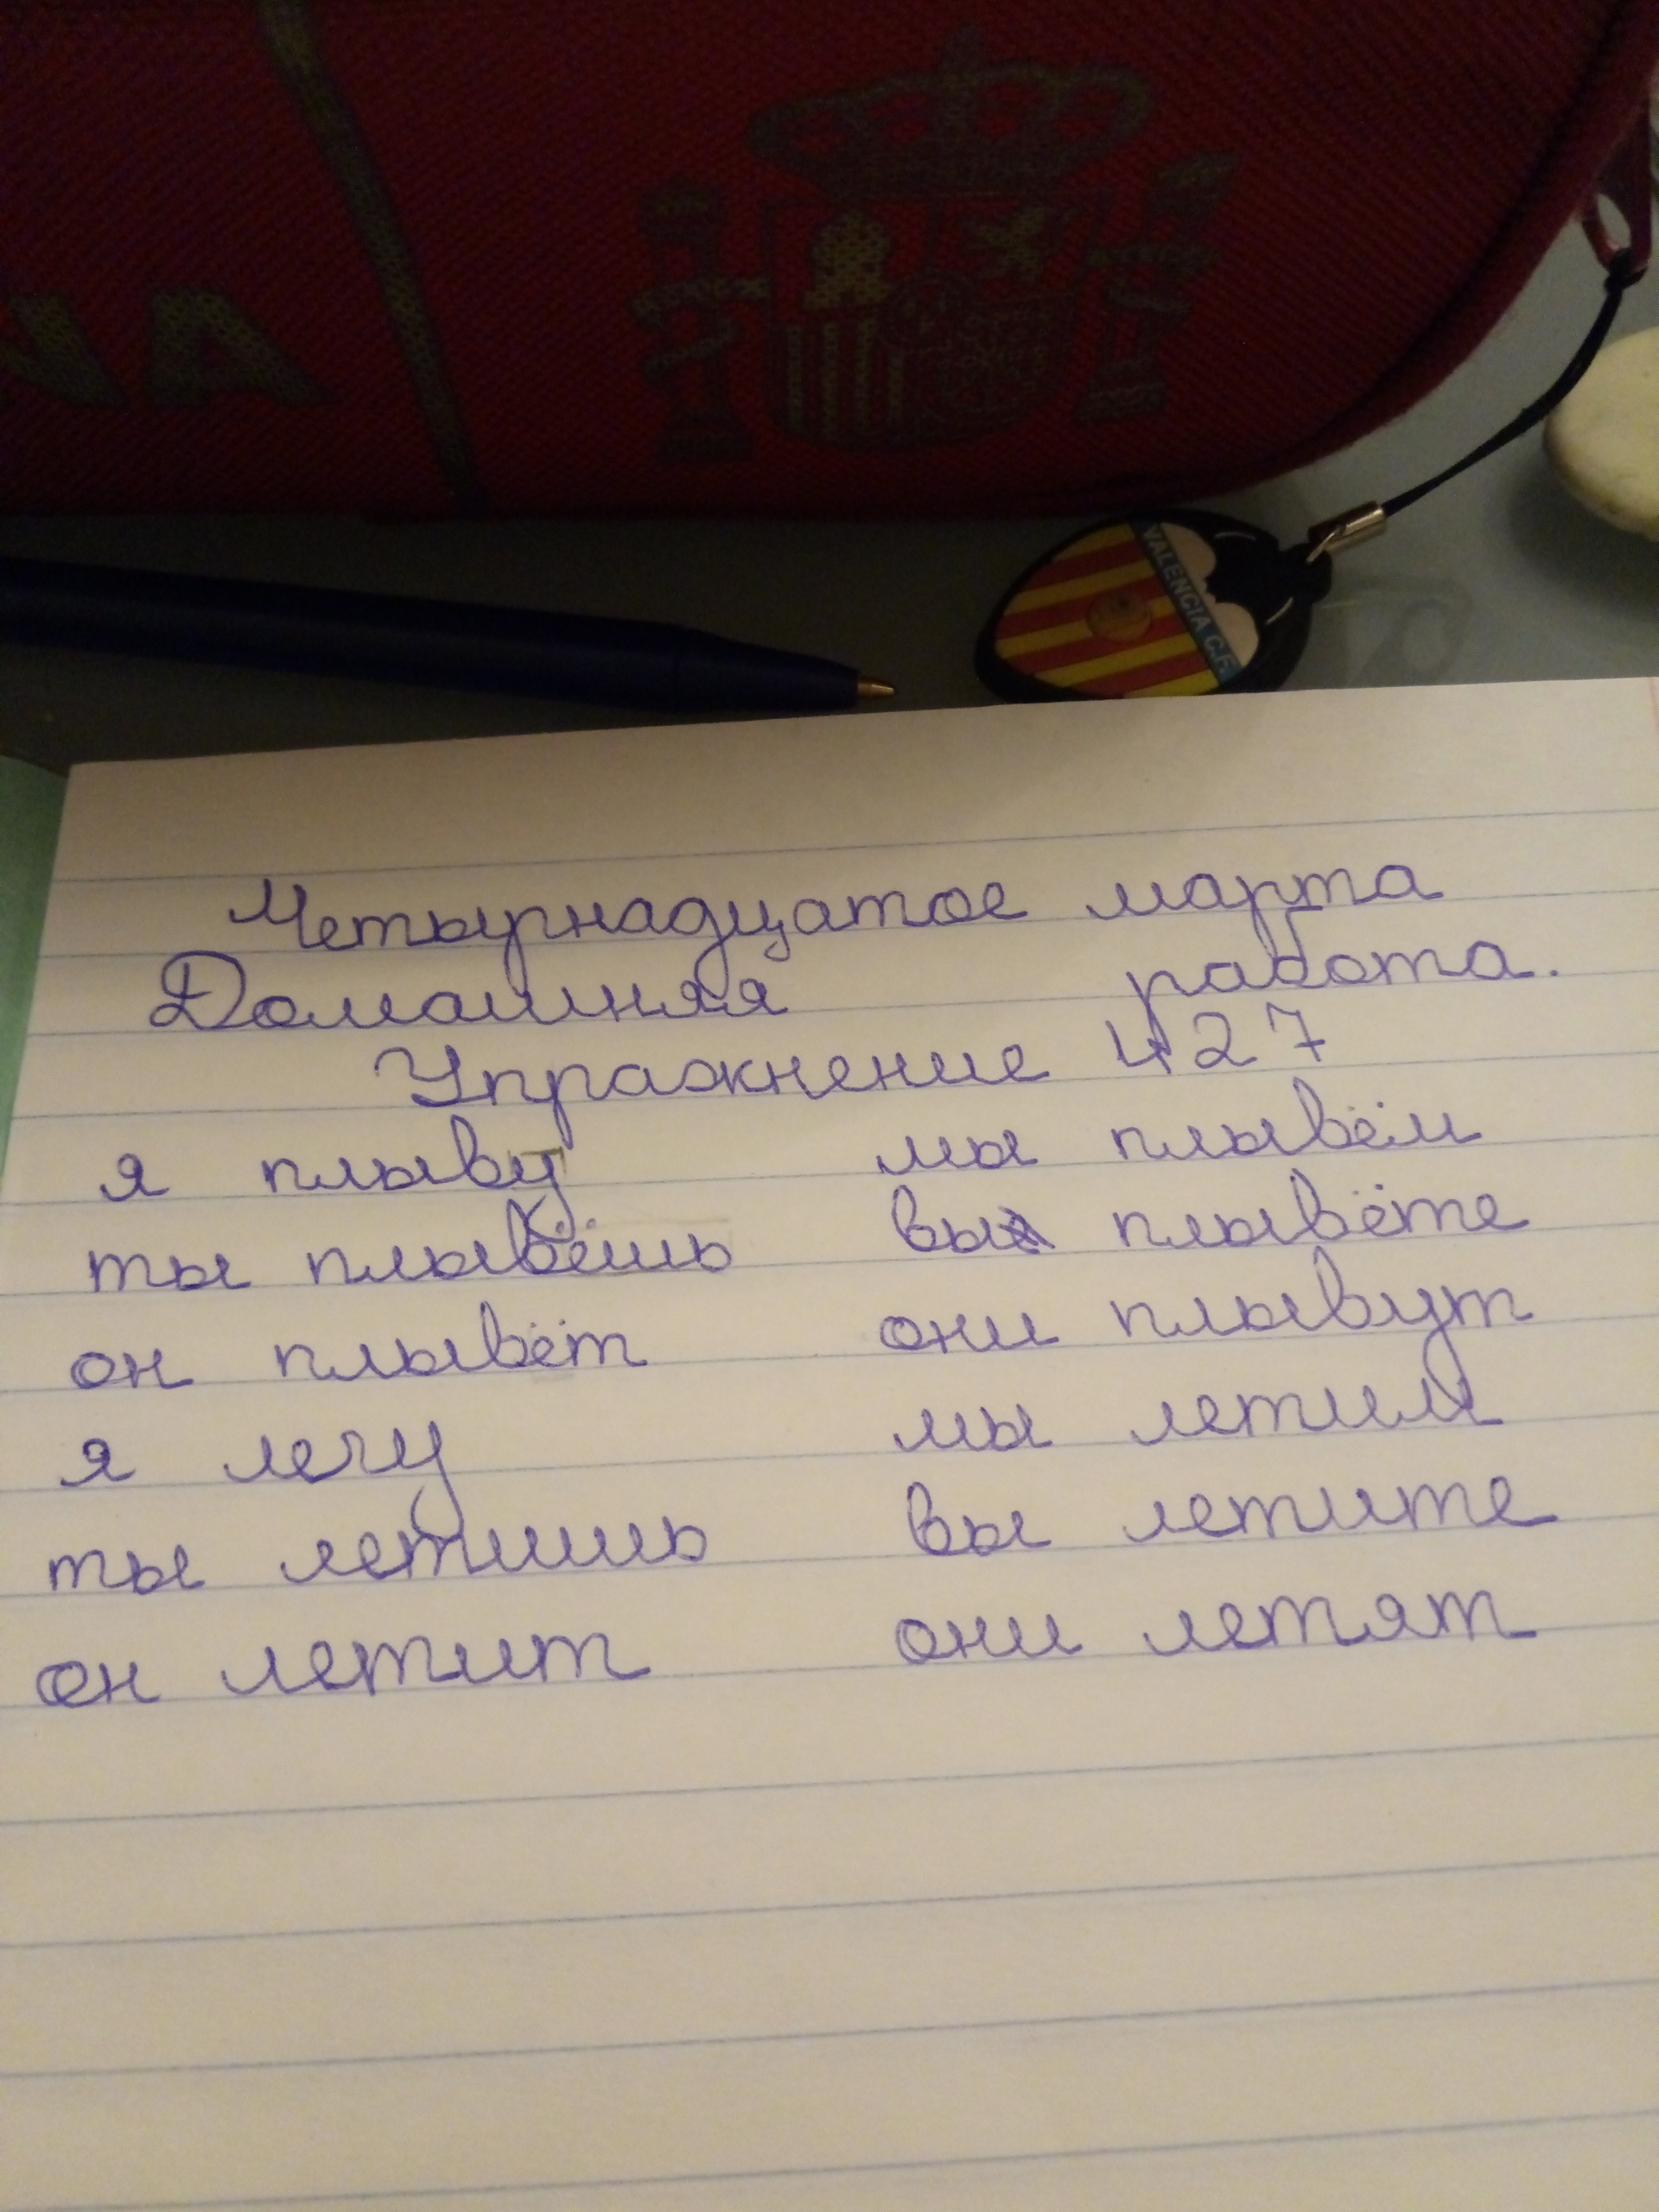 VALENCIA C.F.
Четырнадцатое марта
Домашняя работа.
Упражнение 427
я плыву мы плывём
ты плывёшь вы плывёте
он плывёт они плывут
я лечу мы летим
ты летишь вы летите
он летит они летят